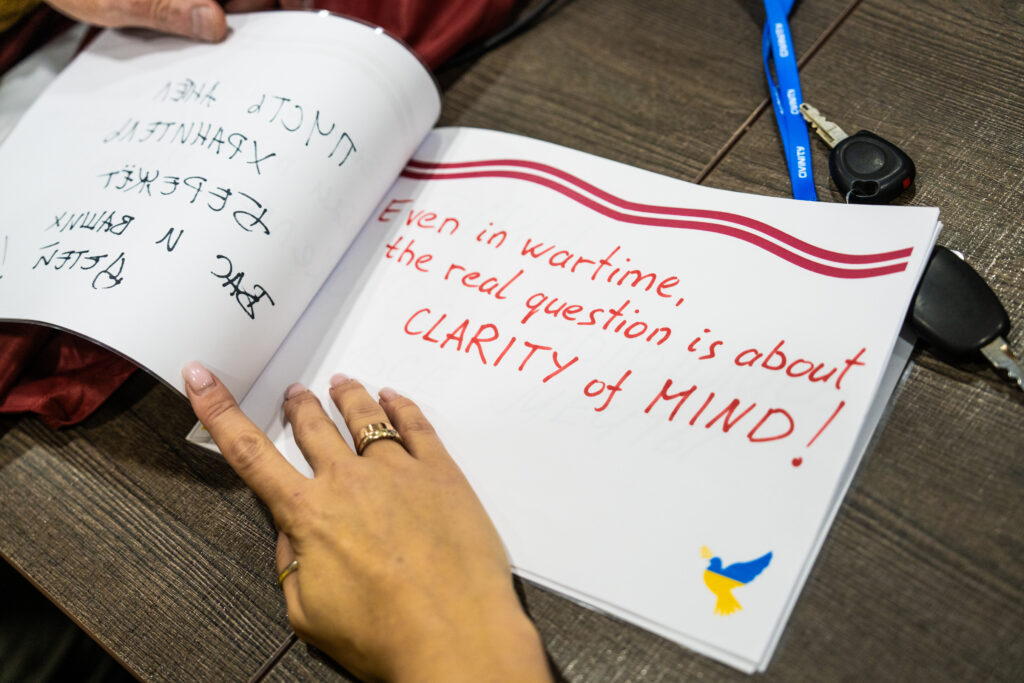 ПУСТЬ АНЕЛ
ХРАНИТЕЛЬ
БЕРЕЖЁТ
ВАС И ВАШИХ
ДЕТЕЙ !
Even in wartime,
the real question is about
CLARITY of MIND!